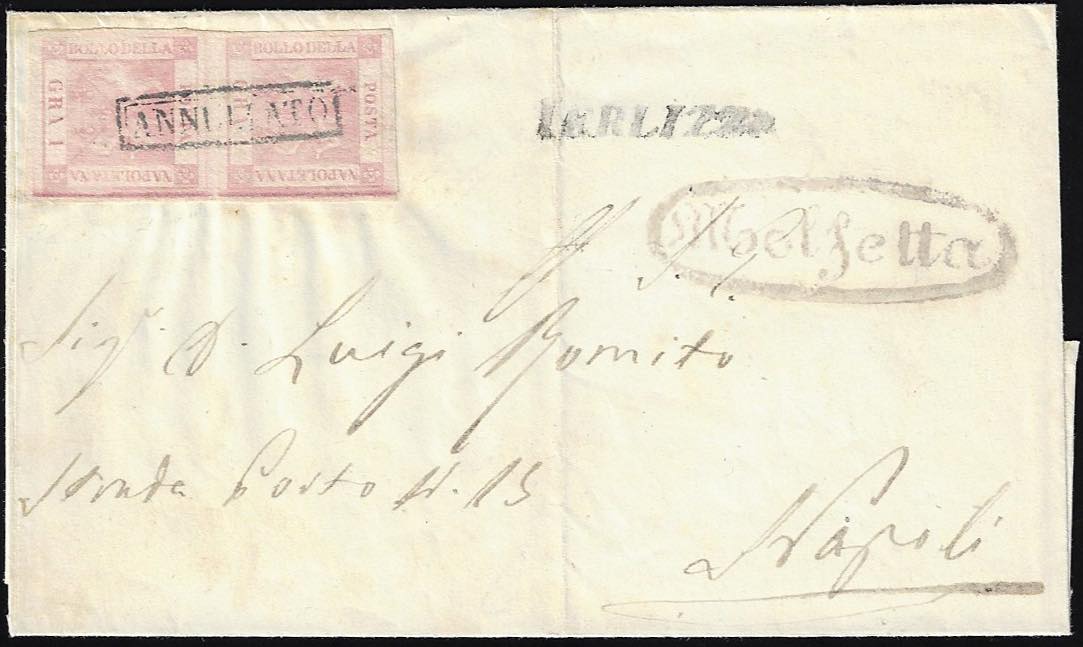 BOLLO DELLA BOLLO DELLA
GRA 1 G POSTA
NAPOLETANA NAPOLETANA
ANNULLATO
TERLIZZI
Molfetta
Sig. D. Luigi Romito
Strada Porto N. 15
Napoli